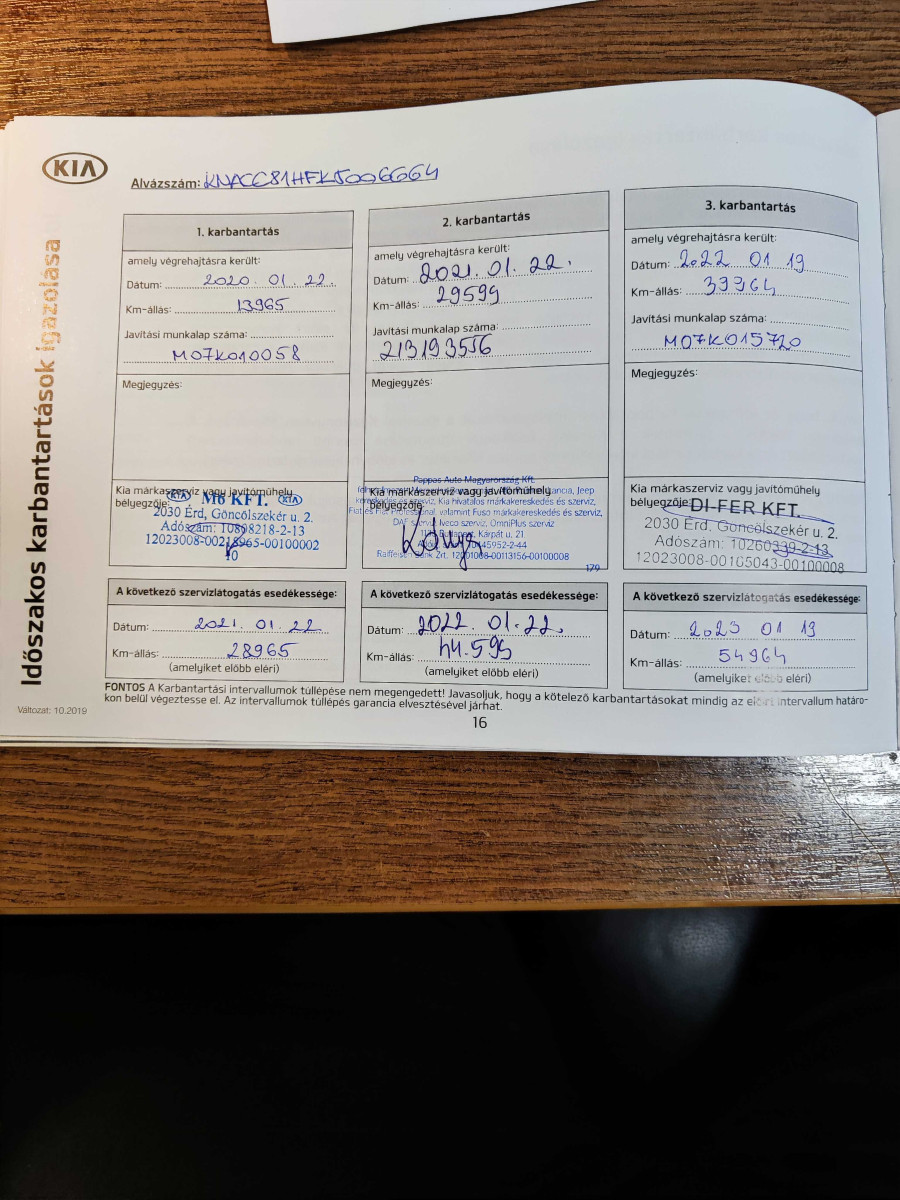 KIA
Alvázszám: KNACC81HFK5006664
Időszakos karbantartások igazolása
1. karbantartás
amely végrehajtásra került:
Dátum: 2020. 01. 22.
Km-állás: 13965
Javítási munkalap száma:
M07K010058
Megjegyzés:
Kia márkaszerviz vagy javítóműhely
bélyegzője:
KIA M6 KFT. KIA
2030 Érd, Göncölszekér u. 2.
Adószám: 10898218-2-13
12023008-00218965-00100002
10
A következő szervizlátogatás esedékessége:
Dátum: 2021. 01. 22
Km-állás: 28965
(amelyiket előbb eléri)
2. karbantartás
amely végrehajtásra került:
Dátum: 2021. 01. 22.
Km-állás: 29595
Javítási munkalap száma:
213193556
Megjegyzés:
Kia márkaszerviz vagy javítóműhely
bélyegzője:
Pappas Auto Magyarország Kft.
Lancia, Jeep
kereskedés és szerviz, Kia hivatalos márkakereskedés és szerviz,
Fiat és Fiat Professional, valamint Fuso márkakereskedés és szerviz,
DAF szerviz, Iveco szerviz, OmniPlus szerviz
Budapest, Kárpát u. 21.
45952-2-44
Raiffeisen Bank Zrt. 12001008-00113156-00100008
179
A következő szervizlátogatás esedékessége:
Dátum: 2022. 01. 22.
Km-állás: 44.595
(amelyiket előbb eléri)
3. karbantartás
amely végrehajtásra került:
Dátum: 2022 01 19
Km-állás: 39964
Javítási munkalap száma:
M07K015720
Megjegyzés:
Kia márkaszerviz vagy javítóműhely
bélyegzője:
DI-FER KFT.
2030 Érd, Göncölszekér u. 2.
Adószám: 10260339-2-13
12023008-00105043-00100008
A következő szervizlátogatás esedékessége:
Dátum: 2023 01 19
Km-állás: 54964
(amelyiket előbb eléri)
FONTOS A Karbantartási intervallumok túllépése nem megengedett! Javasoljuk, hogy a kötelező karbantartásokat mindig az előírt intervallum határo-
kon belül végeztesse el. Az intervallumok túllépés garancia elvesztésével járhat.
Változat: 10.2019
16